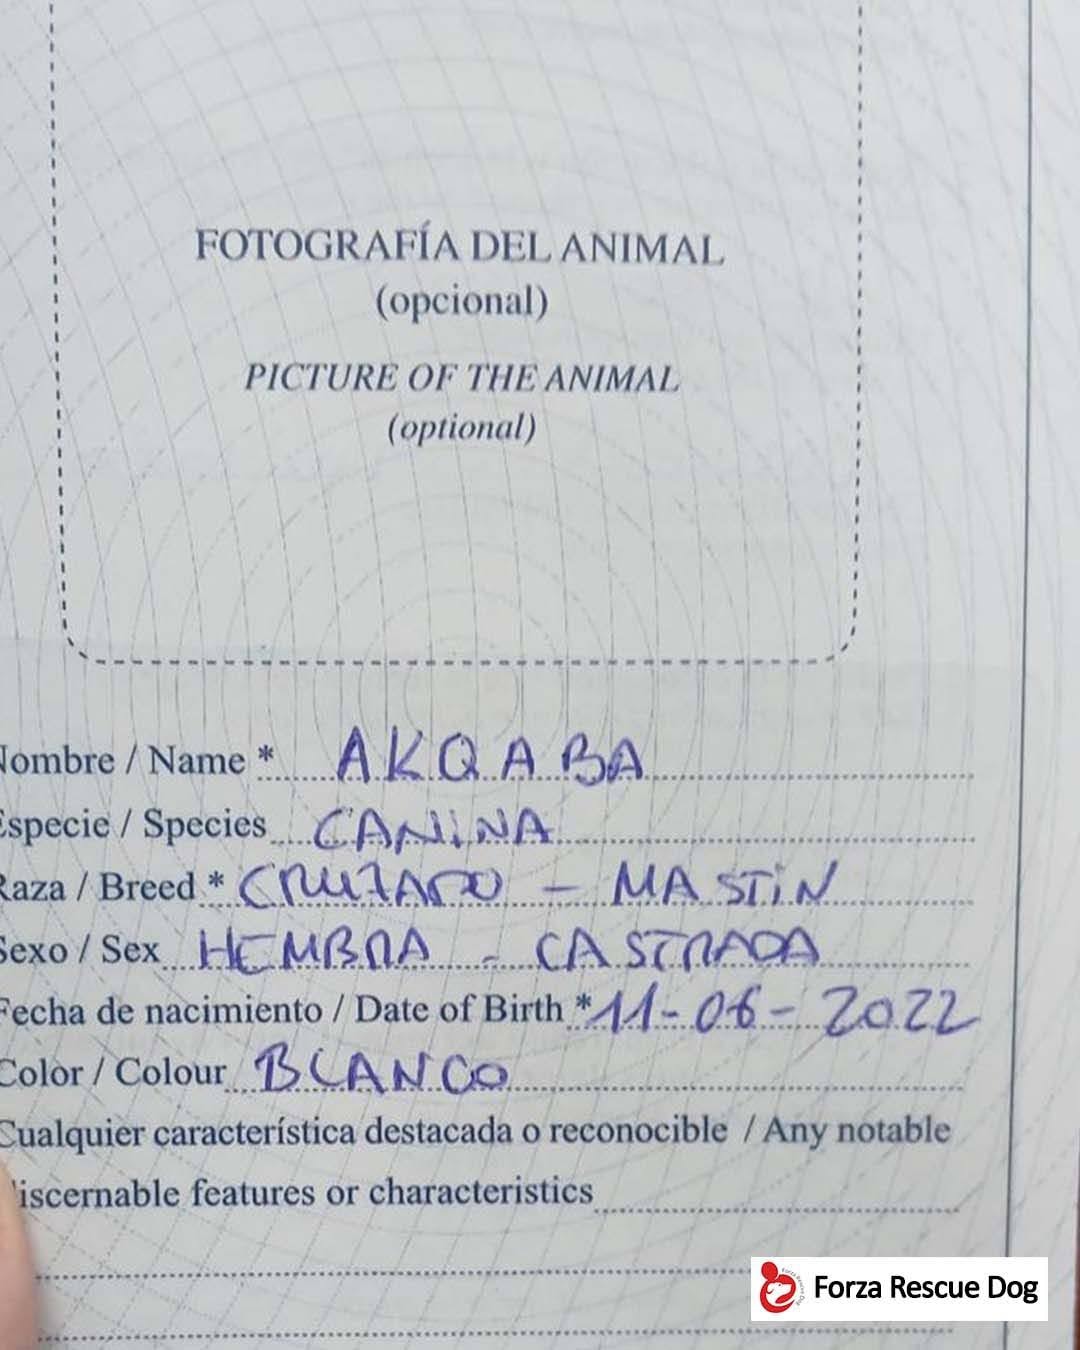 FOTOGRAFÍA DEL ANIMAL
(opcional)
PICTURE OF THE ANIMAL
(optional)
Nombre / Name * AKQABA
Especie / Species CANINA
Raza / Breed * CRUZADO - MASTIN
Sexo / Sex HEMBRA - CASTRADA
Fecha de nacimiento / Date of Birth * 11-06-2022
Color / Colour BLANCO
Cualquier característica destacada o reconocible / Any notable
iscernable features or characteristics
Forza Rescue Dog